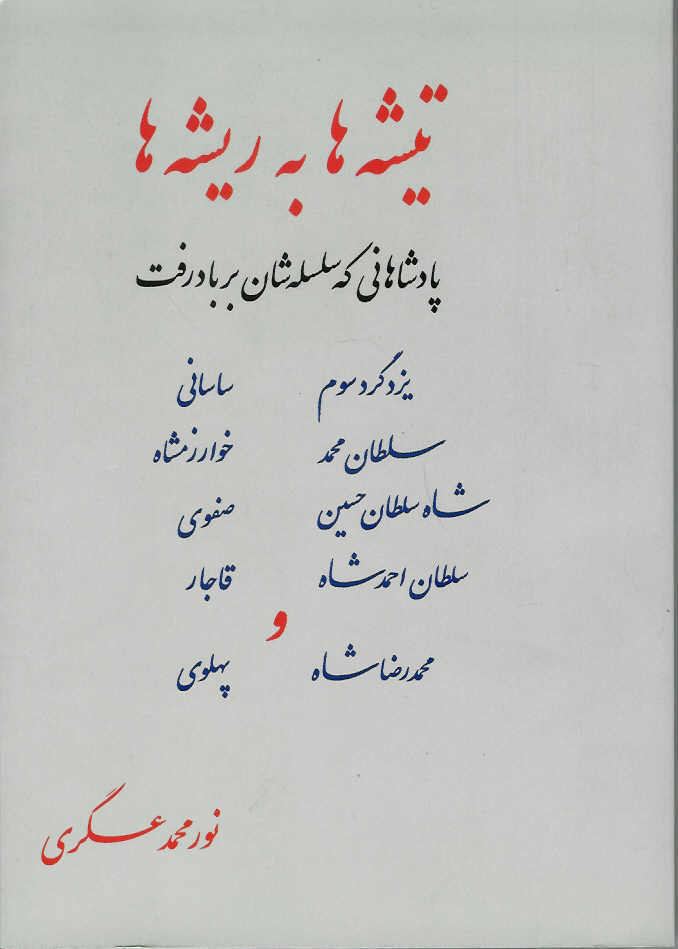 تیشه ها به ریشه ها
پادشاهانی که سلسله شان بر باد رفت
یزدگرد سوم ساسانی
سلطان محمد خوارزمشاه
شاه سلطان حسین صفوی
سلطان احمد شاه قاجار
و
محمد رضا شاه پهلوی
نور محمد عسگری